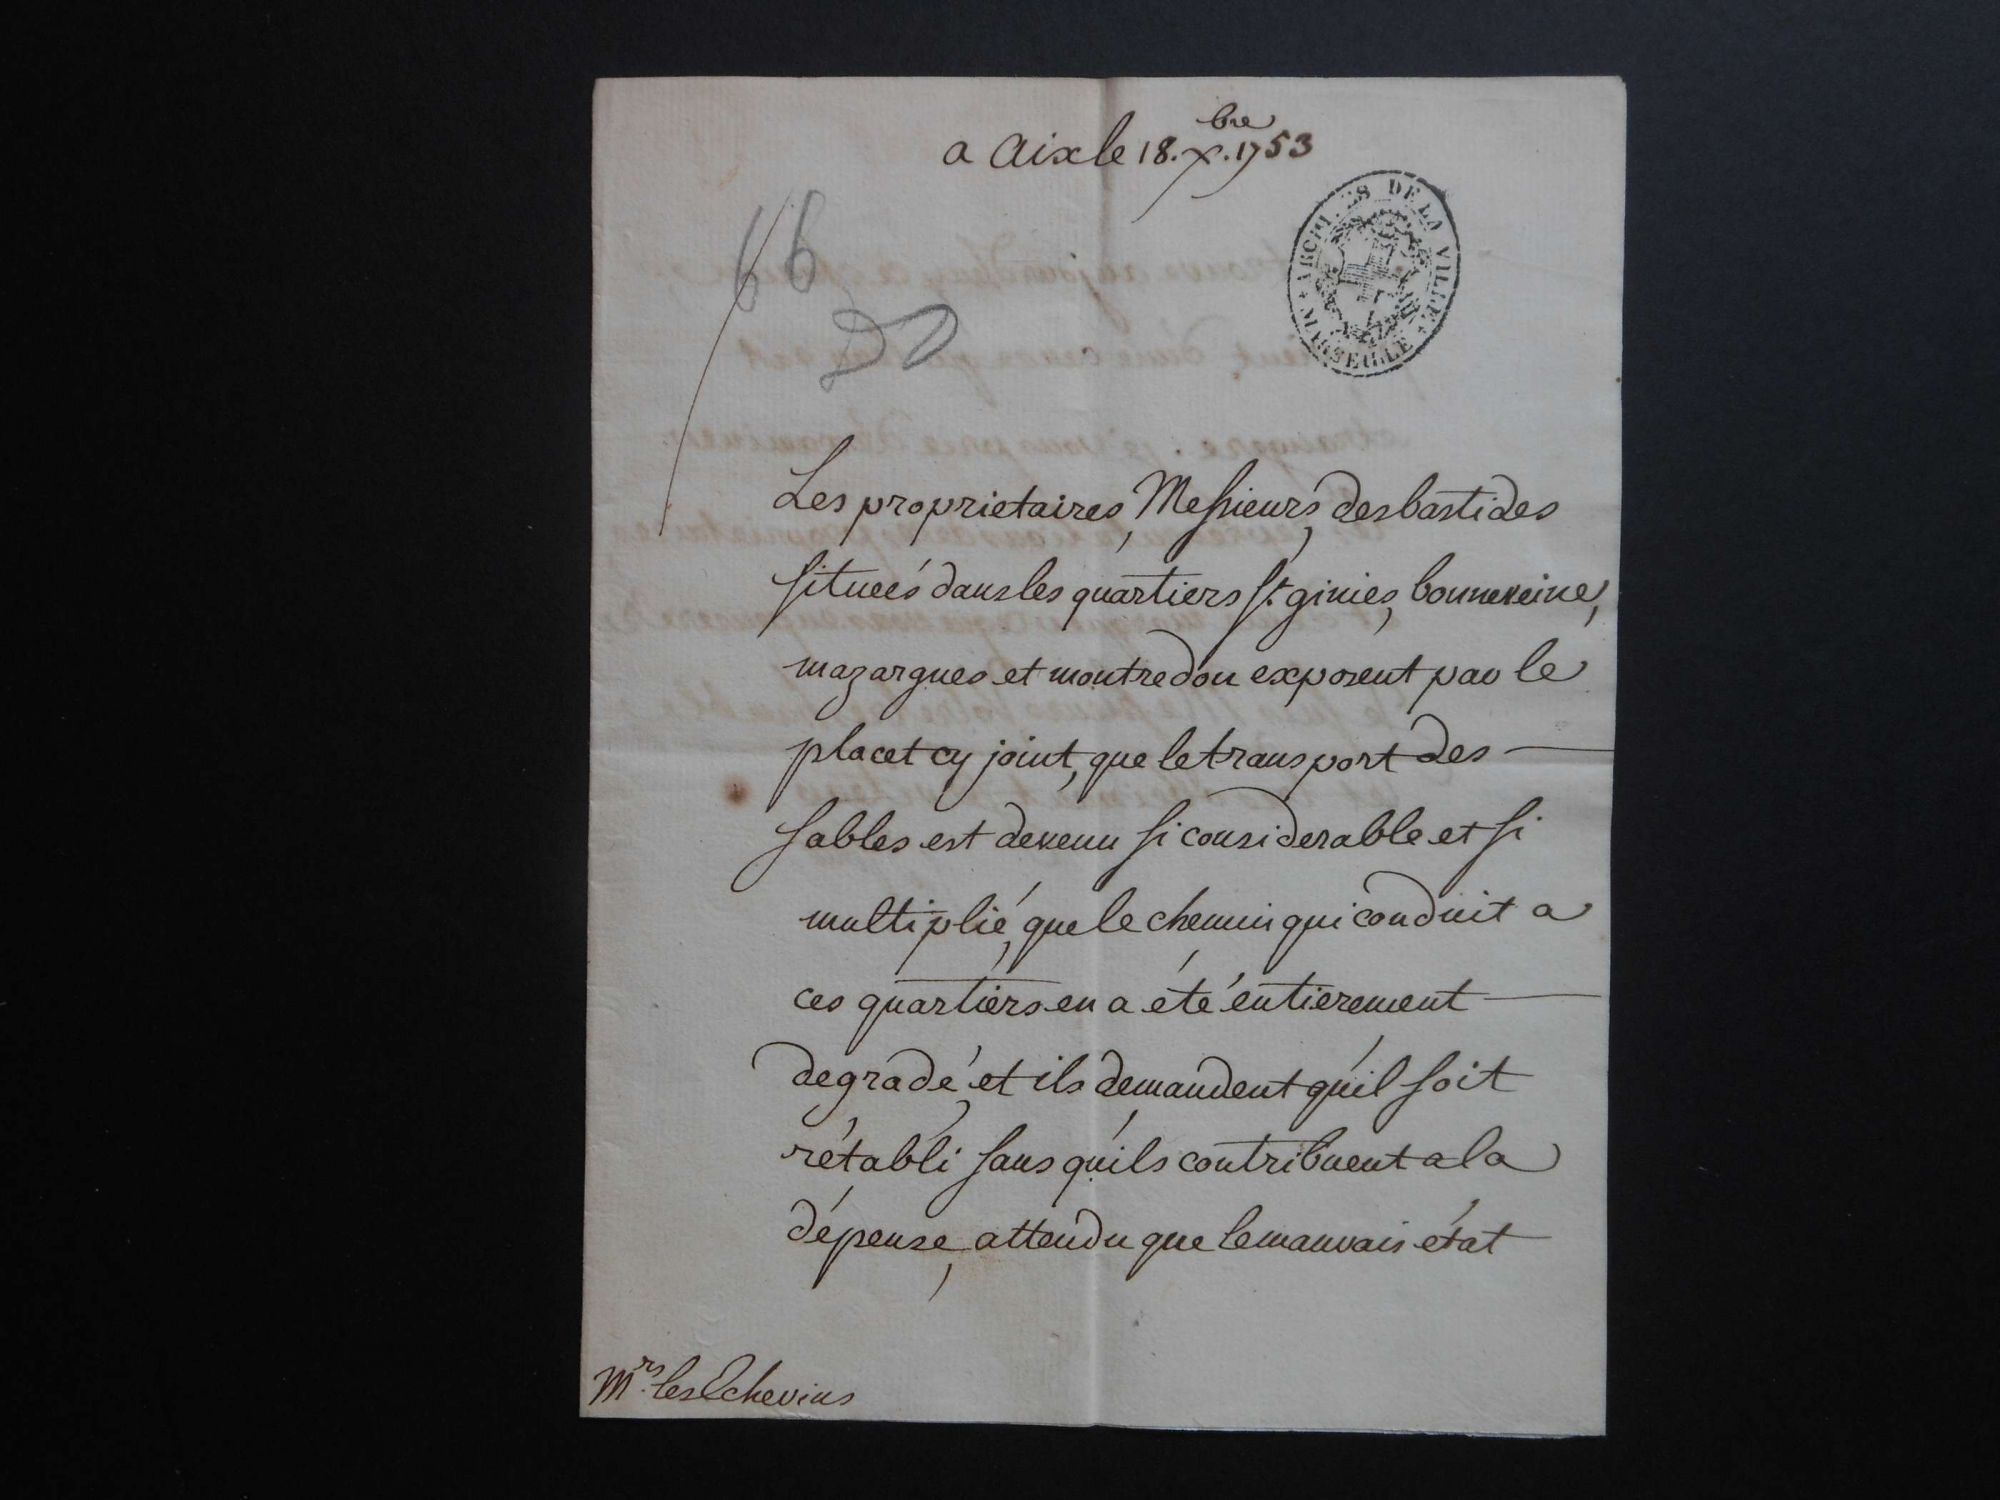 a Aix le 18. Xbre. 1753
66
DD
ARCHIVES DE LA VILLE
MARSEILLE
Les proprietaires, Messieurs, des bastides
situeés dans les quartiers St. ginies, bonneveine,
mazargues et montredon exposent par le
placet cy joint, que le transport des
sables est devenu si considerable et si
multiplié, que le chemin qui conduit a
ces quartiérs en a été entierement
degradé, et ils demandent qu'il soit
rétabli sans qu'ils contribuent a la
dépense, attendu que le mauvais état
Mrs. les Echevins